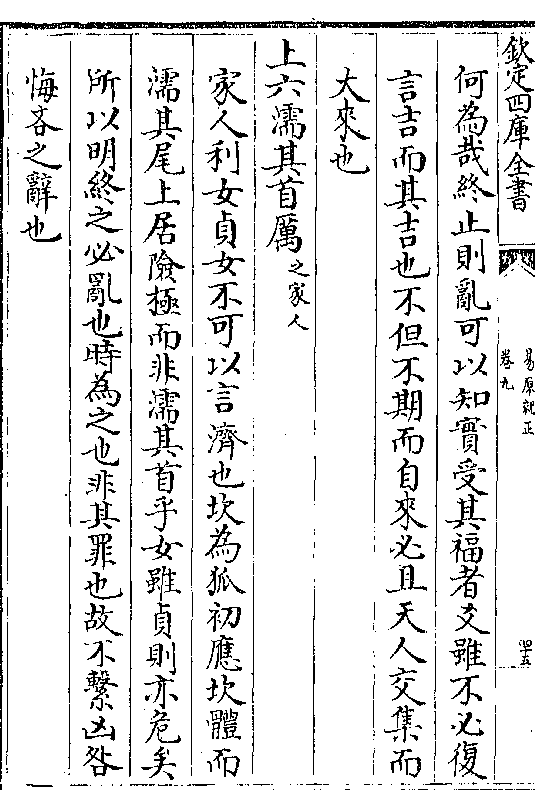 欽定四庫全書
易原就正
卷九
四十五
何為哉終止則亂可以知實受其福者爻雖不必復
言吉而其吉也不但不期而自來必且天人交集而
大來也
上六濡其首厲之家人
家人利女貞女不可以言濟也坎為狐初應坎體而
濡其尾上居險極而非濡其首乎女雖貞則亦危矣
所以明終之必亂也時為之也非其罪也故不繫凶咎
悔吝之辭也